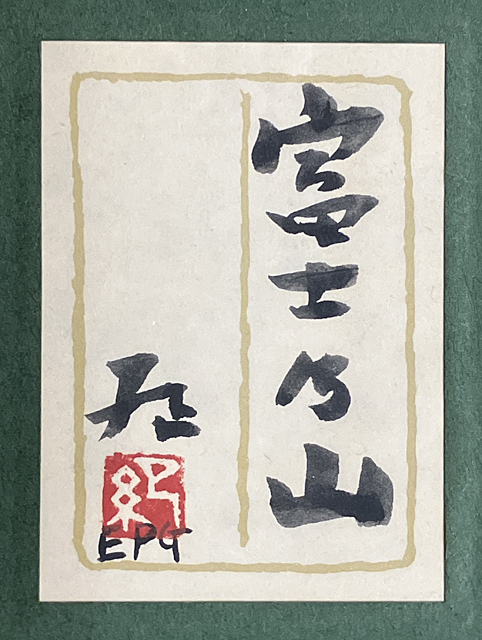 富士乃山
EPG